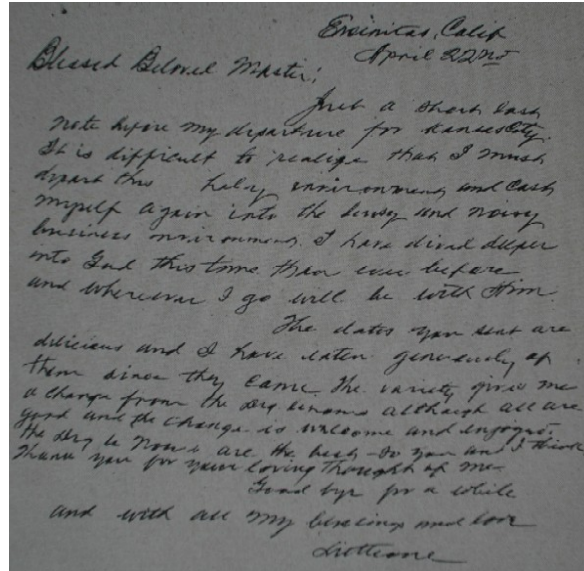 Encinitas, Calif
April 22nd
Blessed Beloved Master:
Just a short last
note before my departure for Kansas City.
It is difficult to realize that I must
depart this holy environment and cast
myself again into the busy and noisy
business environment. I have dived deeper
into God this time than ever before
and wherever I go will be with Him.
The dates you sent are
delicious and I have eaten generously of
them since they came. The variety gives me
a change from the although all are
good and the change is welcome and enjoyed.
the are the best - So you and I think
Thank you for your loving thought of me.
Good bye for a while
and with all my blessings and love